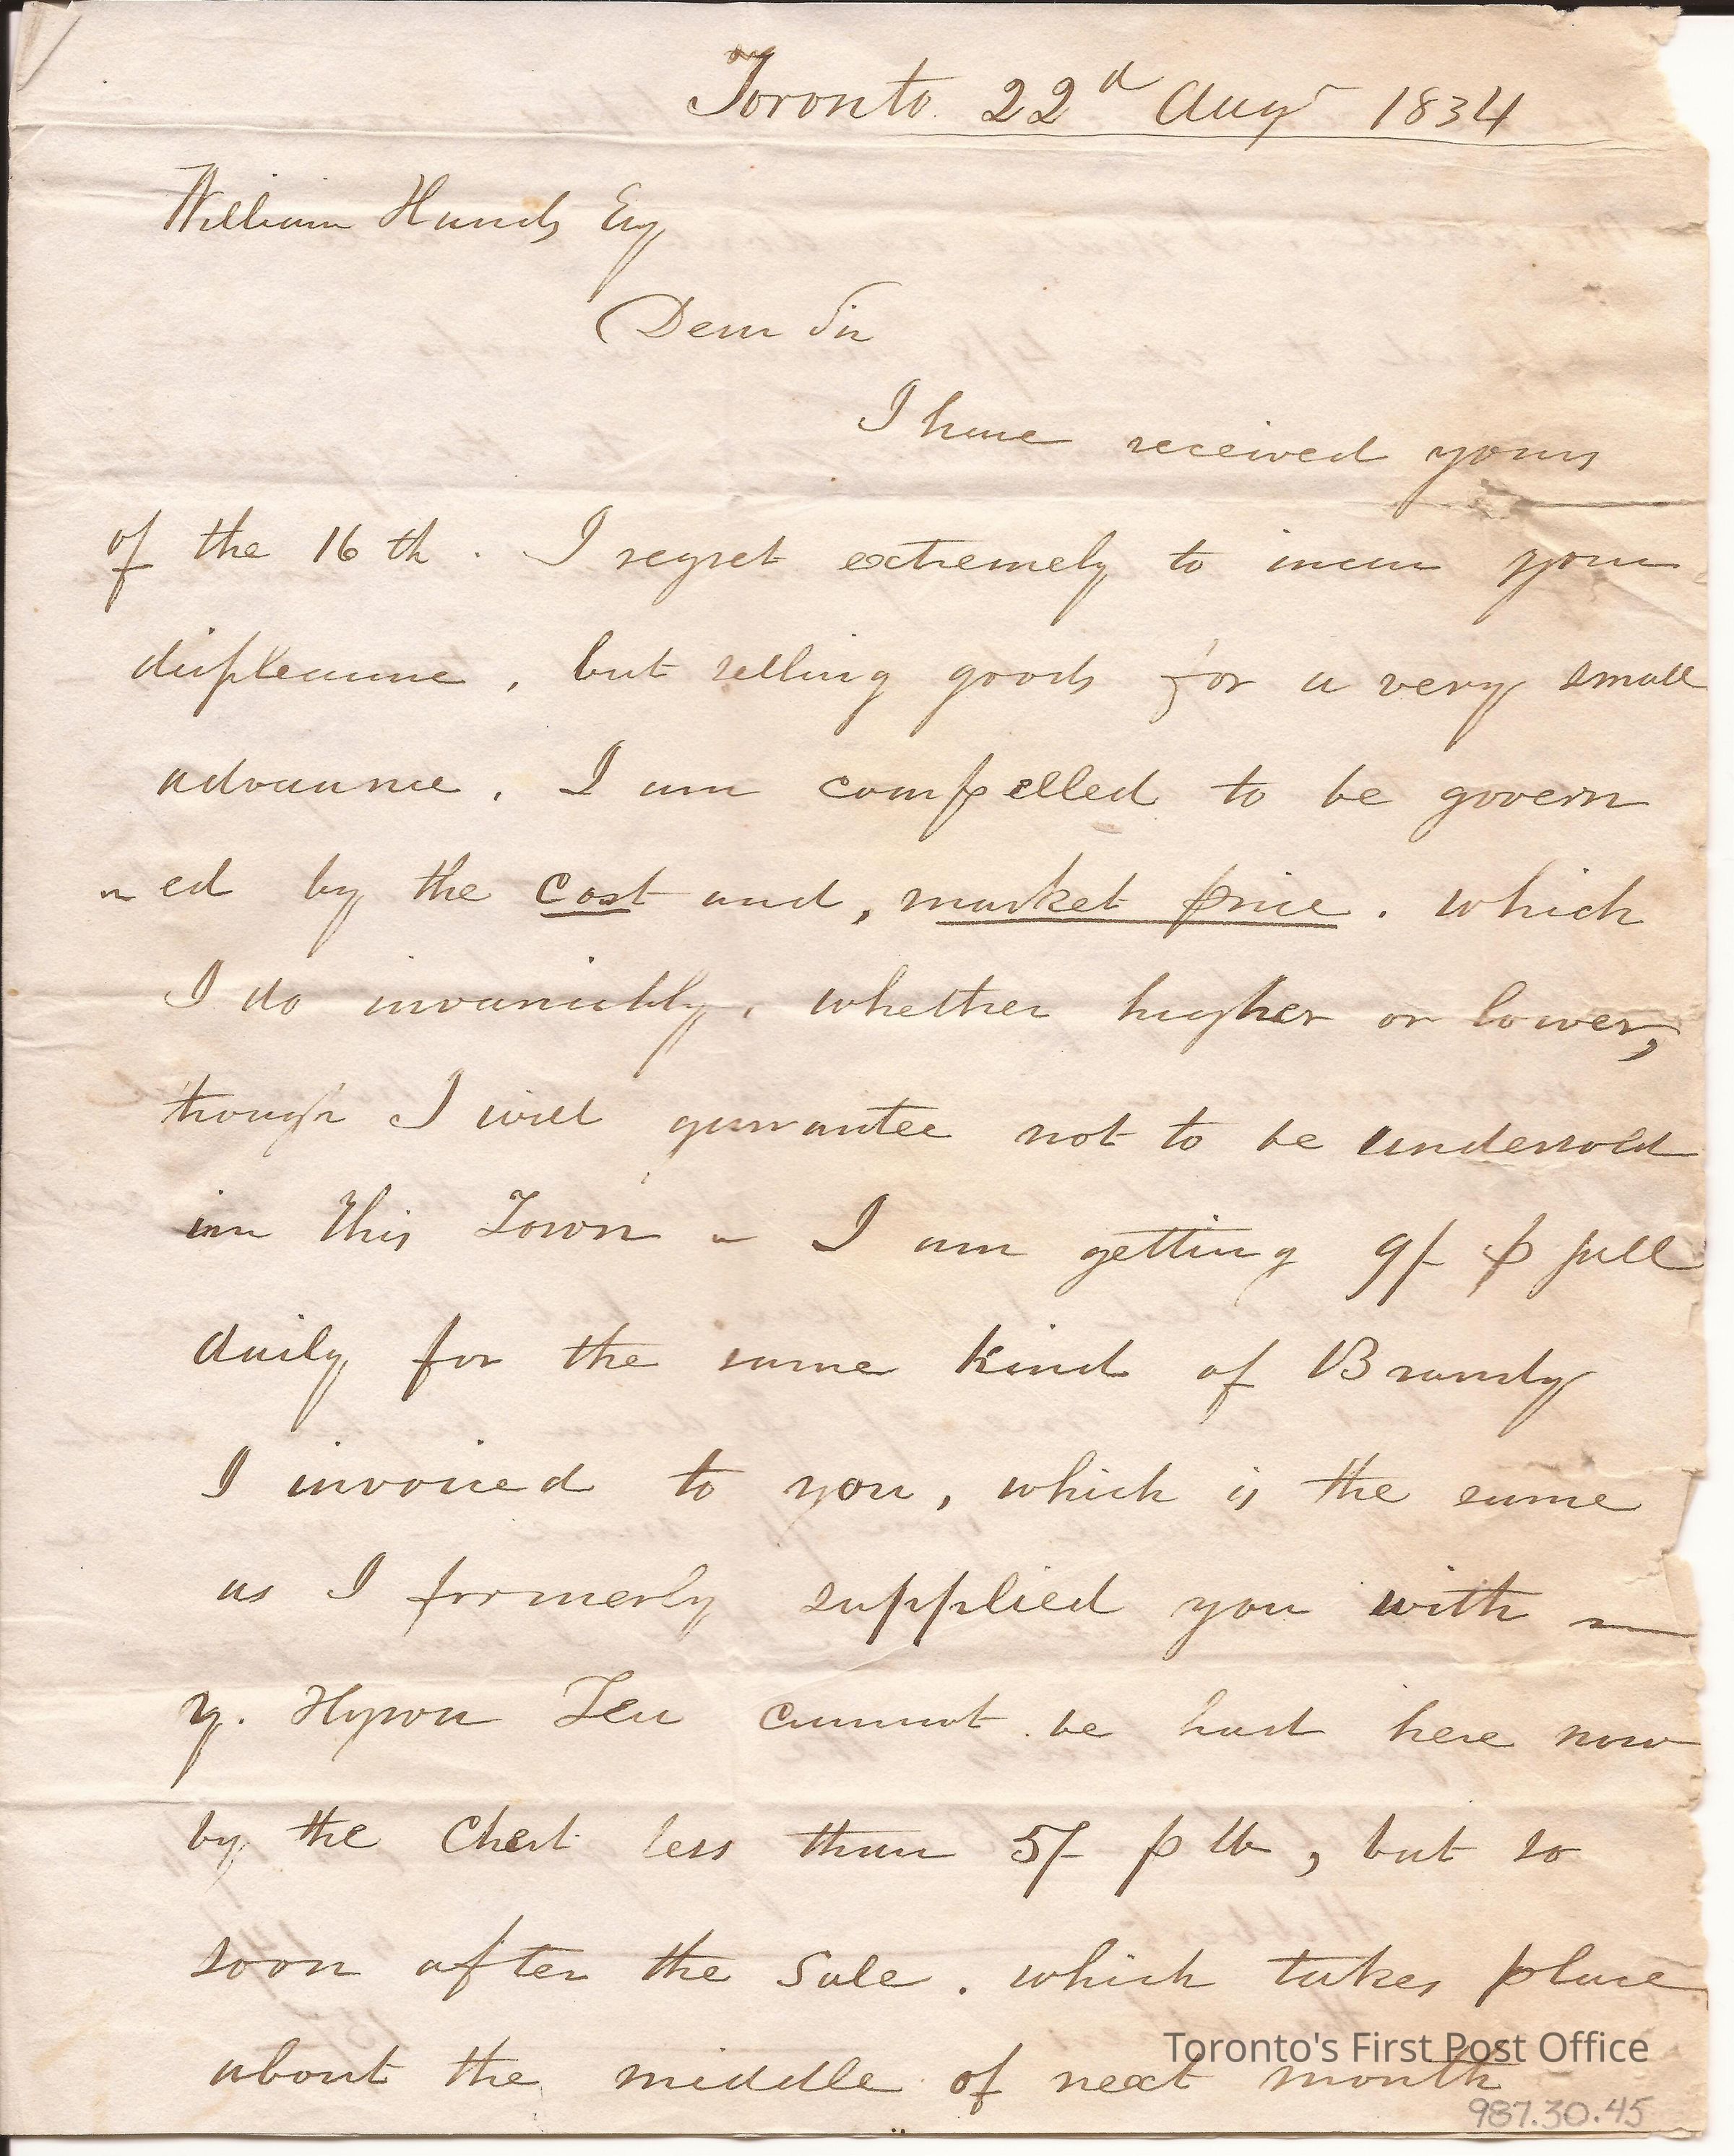 Toronto. 22d Augt 1834
William Hands Esq
Dear Sir
I have received yours
of the 16th. I regret extremely to incur your
displeasure, but selling goods for a very small
advance. I am compelled to be govern
-ed by the cost and, market price. which
I do invariably, whether higher or lower,
though I will guarantee not to be undersold
in this Town - I am getting 9/- p gall
daily for the same kind of Brandy
I invoiced to you, which is the same
as I formerly supplied you with —
Y. Hyson Tea cannot be had here now
by the Chest less than 5/- p lb, but so
soon after the Sale. which takes place
about the middle of next month
Toronto's First Post Office
987.30.45